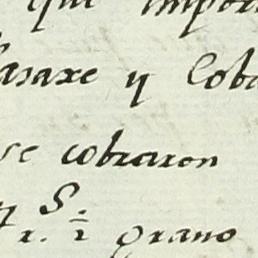 que impor
asaxe y Coba
se cobraron
S.r. grano